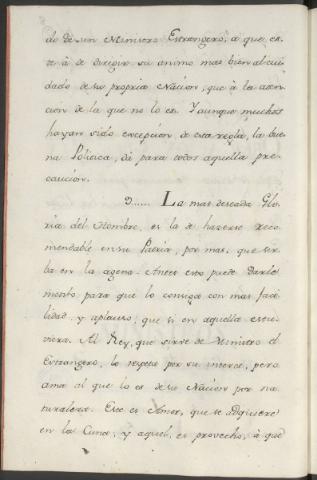 do de un Ministro Estrangero, à que es-
te à de dirigir su animo mas bien al cui-
dado de su propria Nacion, que à la aten-
cion de la que no lo es. Y aunque muchos
hayan sido excepcion de esta regla, la bue-
na Politica, dà para todos aquella pre-
caucion.
9...... La mas deseada Glo-
ria del Hombre, es la de hazerse reco-
mendable en su Patria, por mas, que sir-
ba en la agena. Antes esto puede Darle
merito para que lo consiga con mas faci-
lidad, y aplauso, que si en aquella estu-
viera. Al Rey, que sirve de Ministro el
Estrangero, lo respeta por su interes, pero
ama al que lo es de su Nacion por na-
turaleza. Este es Amor, que se adquiere
en la Cuna, y aquel, es provecho, à que